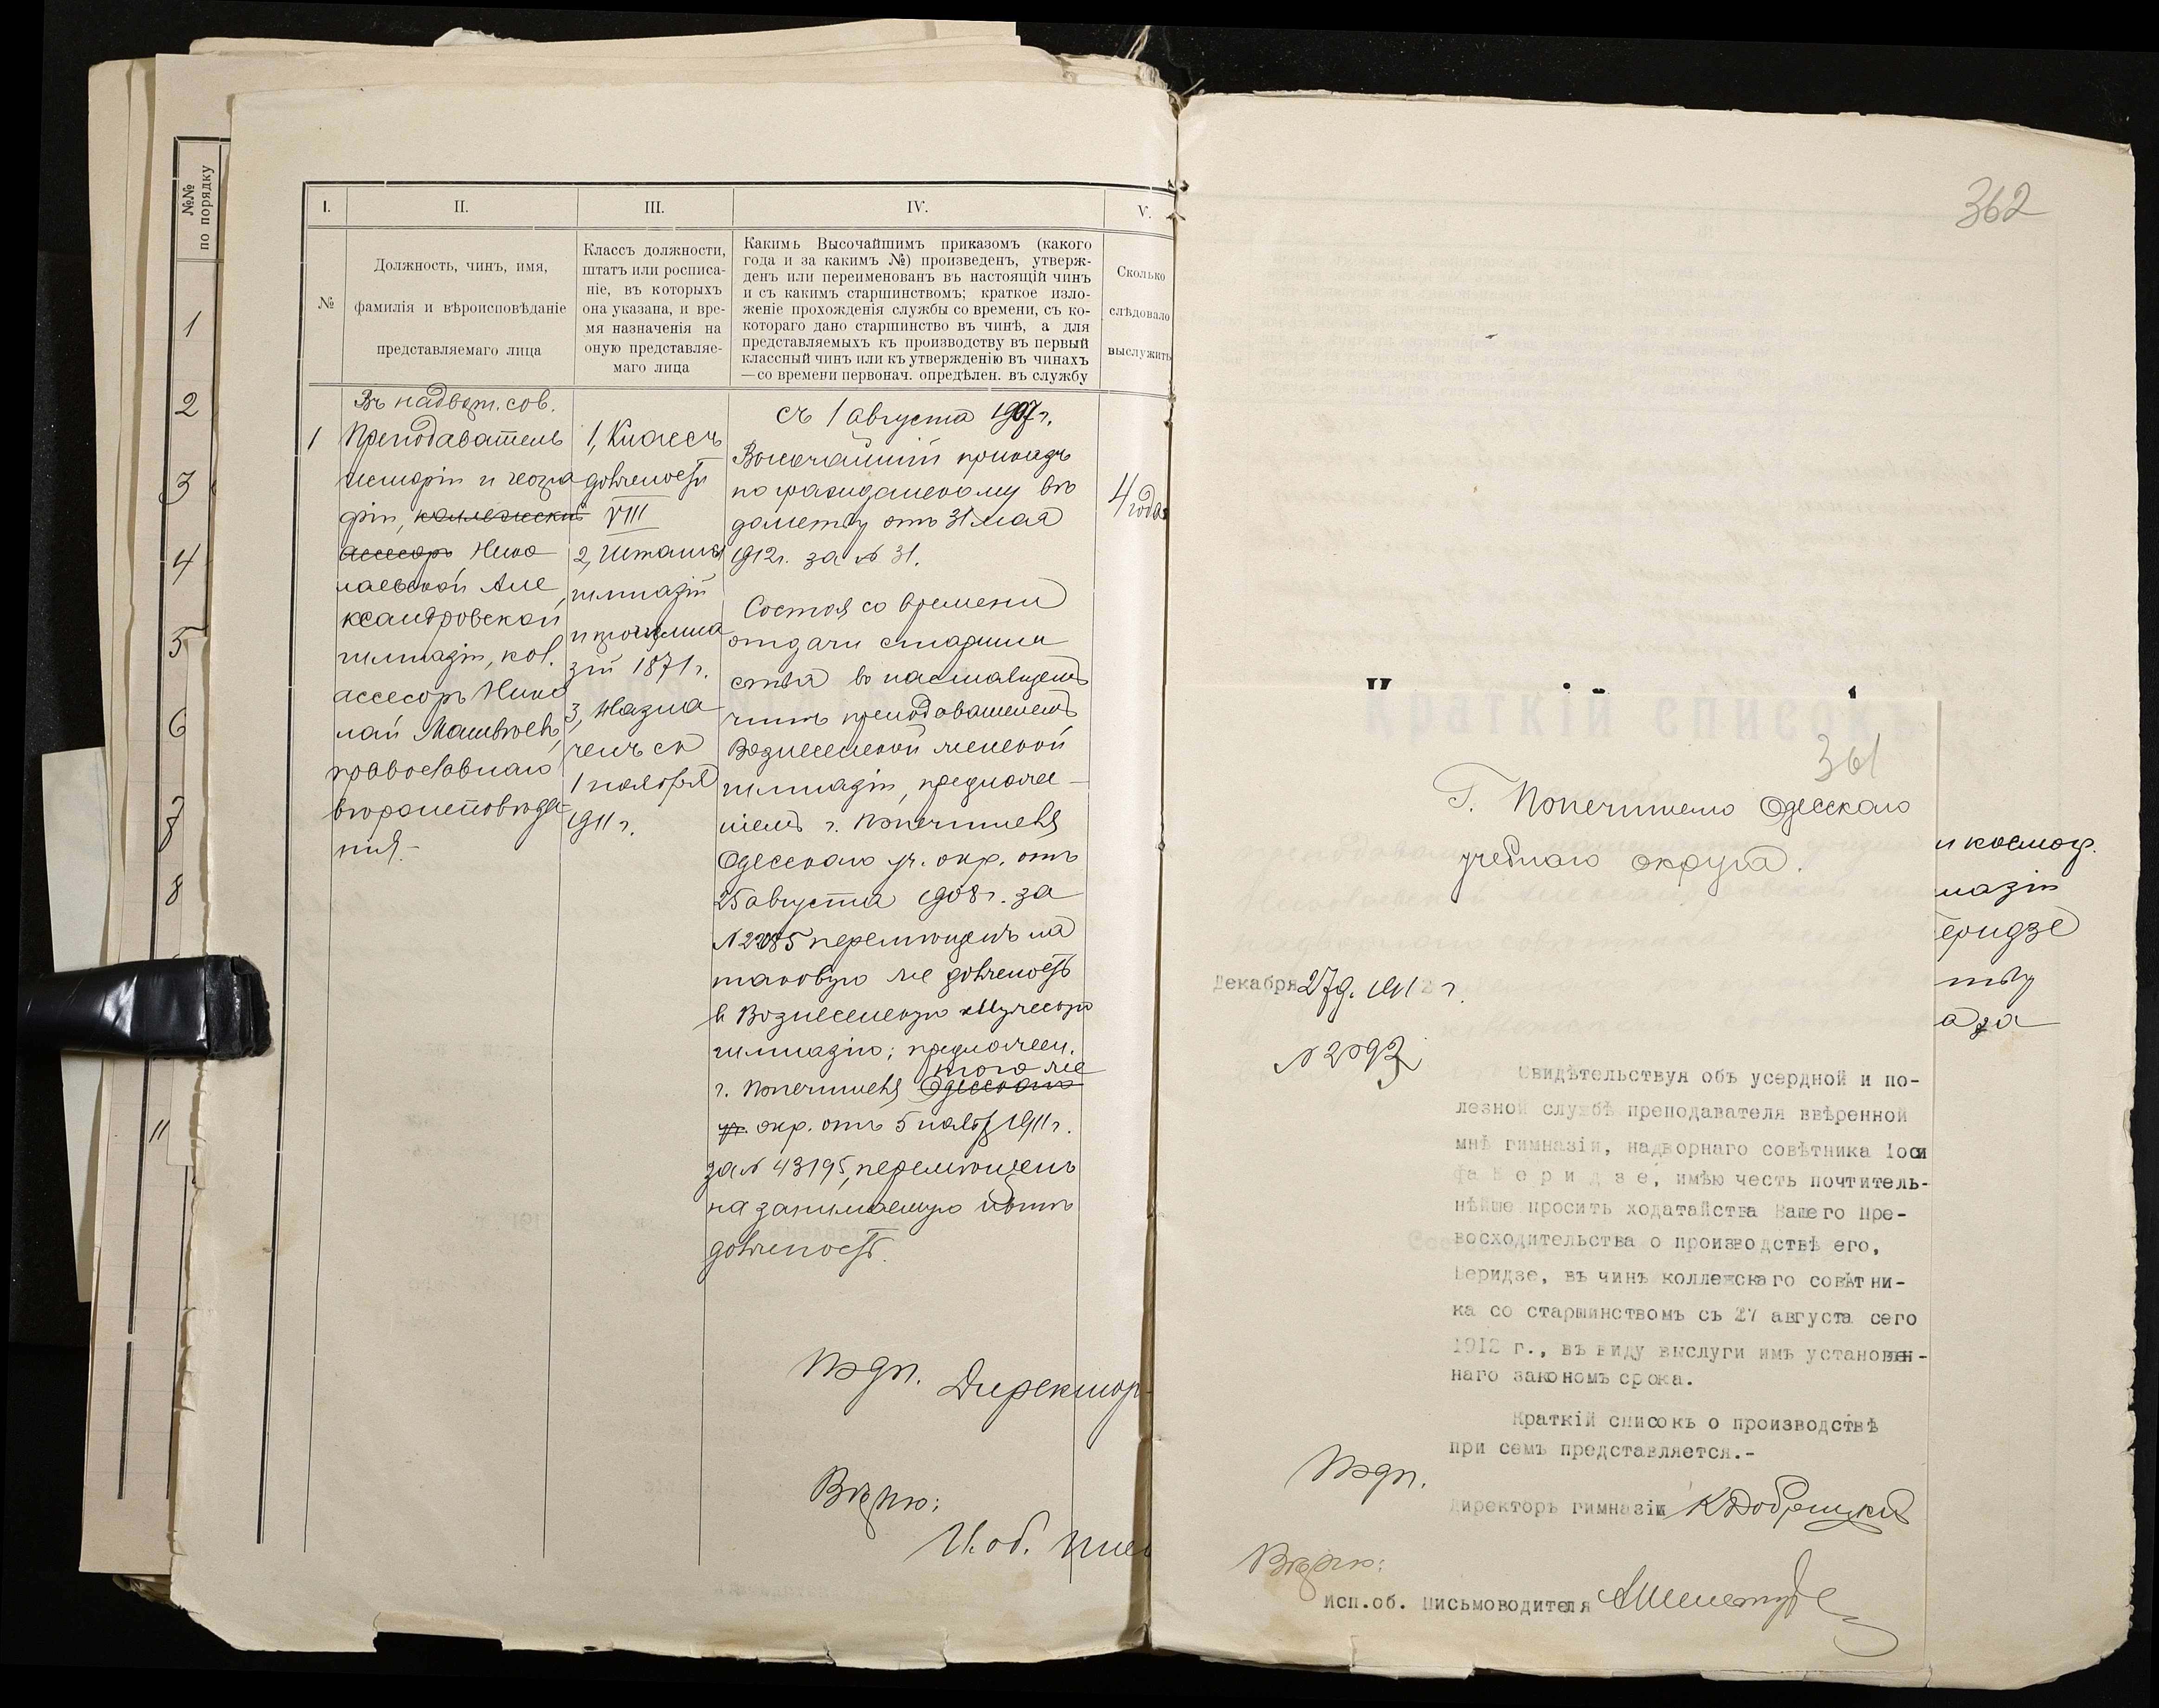 №№
по порядку
1
2
3
4
5
6
7
8
11
I.
II.
III.
IV.
V.
№
Должность, чинъ, имя,
фамилія и вѣроисповѣданіе
представляемаго лица
Классъ должности,
штатъ или росписа-
ніе, въ которыхъ
она указана, и вре-
мя назначенія на
оную представляе-
маго лица
Какимъ Высочайшимъ приказомъ (какого
года и за какимъ №) произведенъ, утверж-
денъ или переименованъ въ настоящій чинъ
и съ какимъ старшинствомъ; краткое изло-
женіе прохожденія службы со времени, съ ко-
котораго дано старшинство въ чинѣ, а для
представляемыхъ къ производству въ первый
классный чинъ или къ утвержденію въ чинахъ
—со времени первонач. опредѣлен. въ службу
Сколько
слѣдовало
выслужить
Въ надвор. сов.
1
Преподаватель
исторіи и геогра
фіи, коллежскій
ассесоръ Нико
лаевской Але
ксандровской
гимназіи, кол.
ассесоръ Нико
лай Матвѣевъ,
православнаго
вѣроисповѣда-
нія.-
1, Классъ
должности
VIII
2, Штаты
гимназій
и прогимна
зій 1871 г.
3, Назна
ченъ съ
1 ноября
1911 г.
съ 1 августа 1907 г.
Высочайшій приказъ
по гражданскому вѣ
домству отъ 31 мая
1912 г. за № 31.
Состоя со времени
отдачи старшин
ства въ настоящемъ
чинѣ преподавателемъ
Вознесенской женской
гимназіи, предложе-
ніемъ г. Попечителя
Одесскаго уч. окр. отъ
25 августа 1908 г. за
перемѣщенъ на
таковую же должность
въ Вознесенскую мужскую
гимназію; предложен.
того же
г. Попечителя Одесскаго
уч. окр. отъ 5 нояб. 1911 г.
за № 43195, перемѣщенъ
на занимаемую имъ
должность.
4 года
Подп. Директор
Вѣрно:
И. об.
362
Краткій списокъ
361
Г. Попечителю Одесскаго
учебнаго округа.
и космог.
назіи
еридзе
ству
а за
Декабря 27 д. 1912 г.
№ 2093
Свидѣтельствуя объ усердной и по-
лезной службѣ преподавателя ввѣренной
мнѣ гимназіи, надворнаго совѣтника Іоси
фа Б е р и д з е, имѣю честь почтитель-
нѣйше просить ходатайства Вашего Пре-
восходительства о производствѣ его,
Беридзе, въ чинъ коллежскаго совѣтни-
ка со старшинствомъ съ 27 августа сего
1912 г., въ виду выслуги имъ установлен-
наго закономъ срока.
Краткій списокъ о производствѣ
при семъ представляется.-
Подп.
Директоръ гимназіи К Добрицкій
Вѣрно:
Исп.об. Письмоводителя